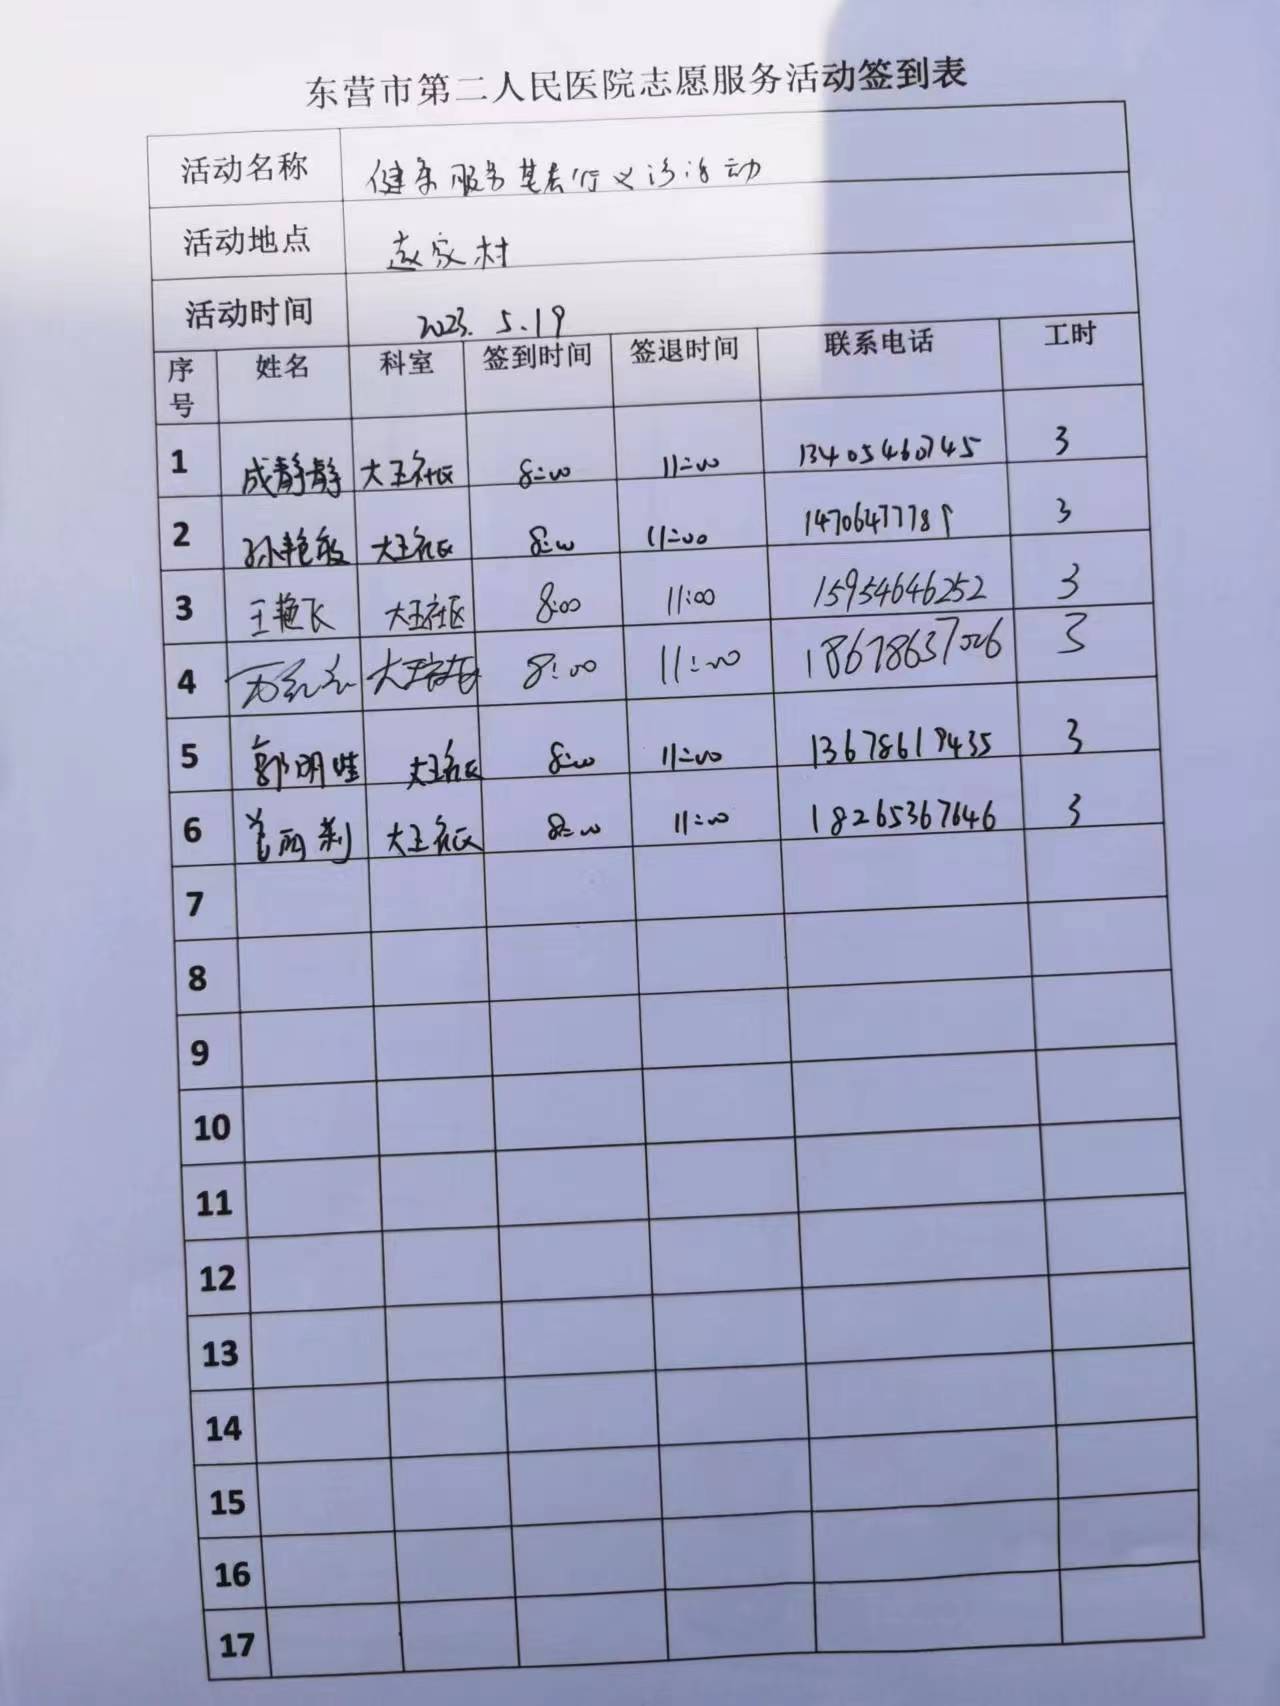 东营市第二人民医院志愿服务活动签到表
活动名称 健康服务基层行义诊活动
活动地点 赵家村
活动时间 2023.5.19
序号 姓名 科室 签到时间 签退时间 联系电话 工时
1 成静静 大王社区 8:00 11:00 13405460745 3
2 孙艳敏 大王社区 8:00 11:00 3
3 王艳飞 大王社区 8:00 11:00 15954646252 3
4 大王社区 8:00 11:00 18678637026 3
5 郭明 大王社区 8:00 11:00 13678619435 3
6 丽莉 大王社区 8:00 11:00 18265367646 3
7
8
9
10
11
12
13
14
15
16
17